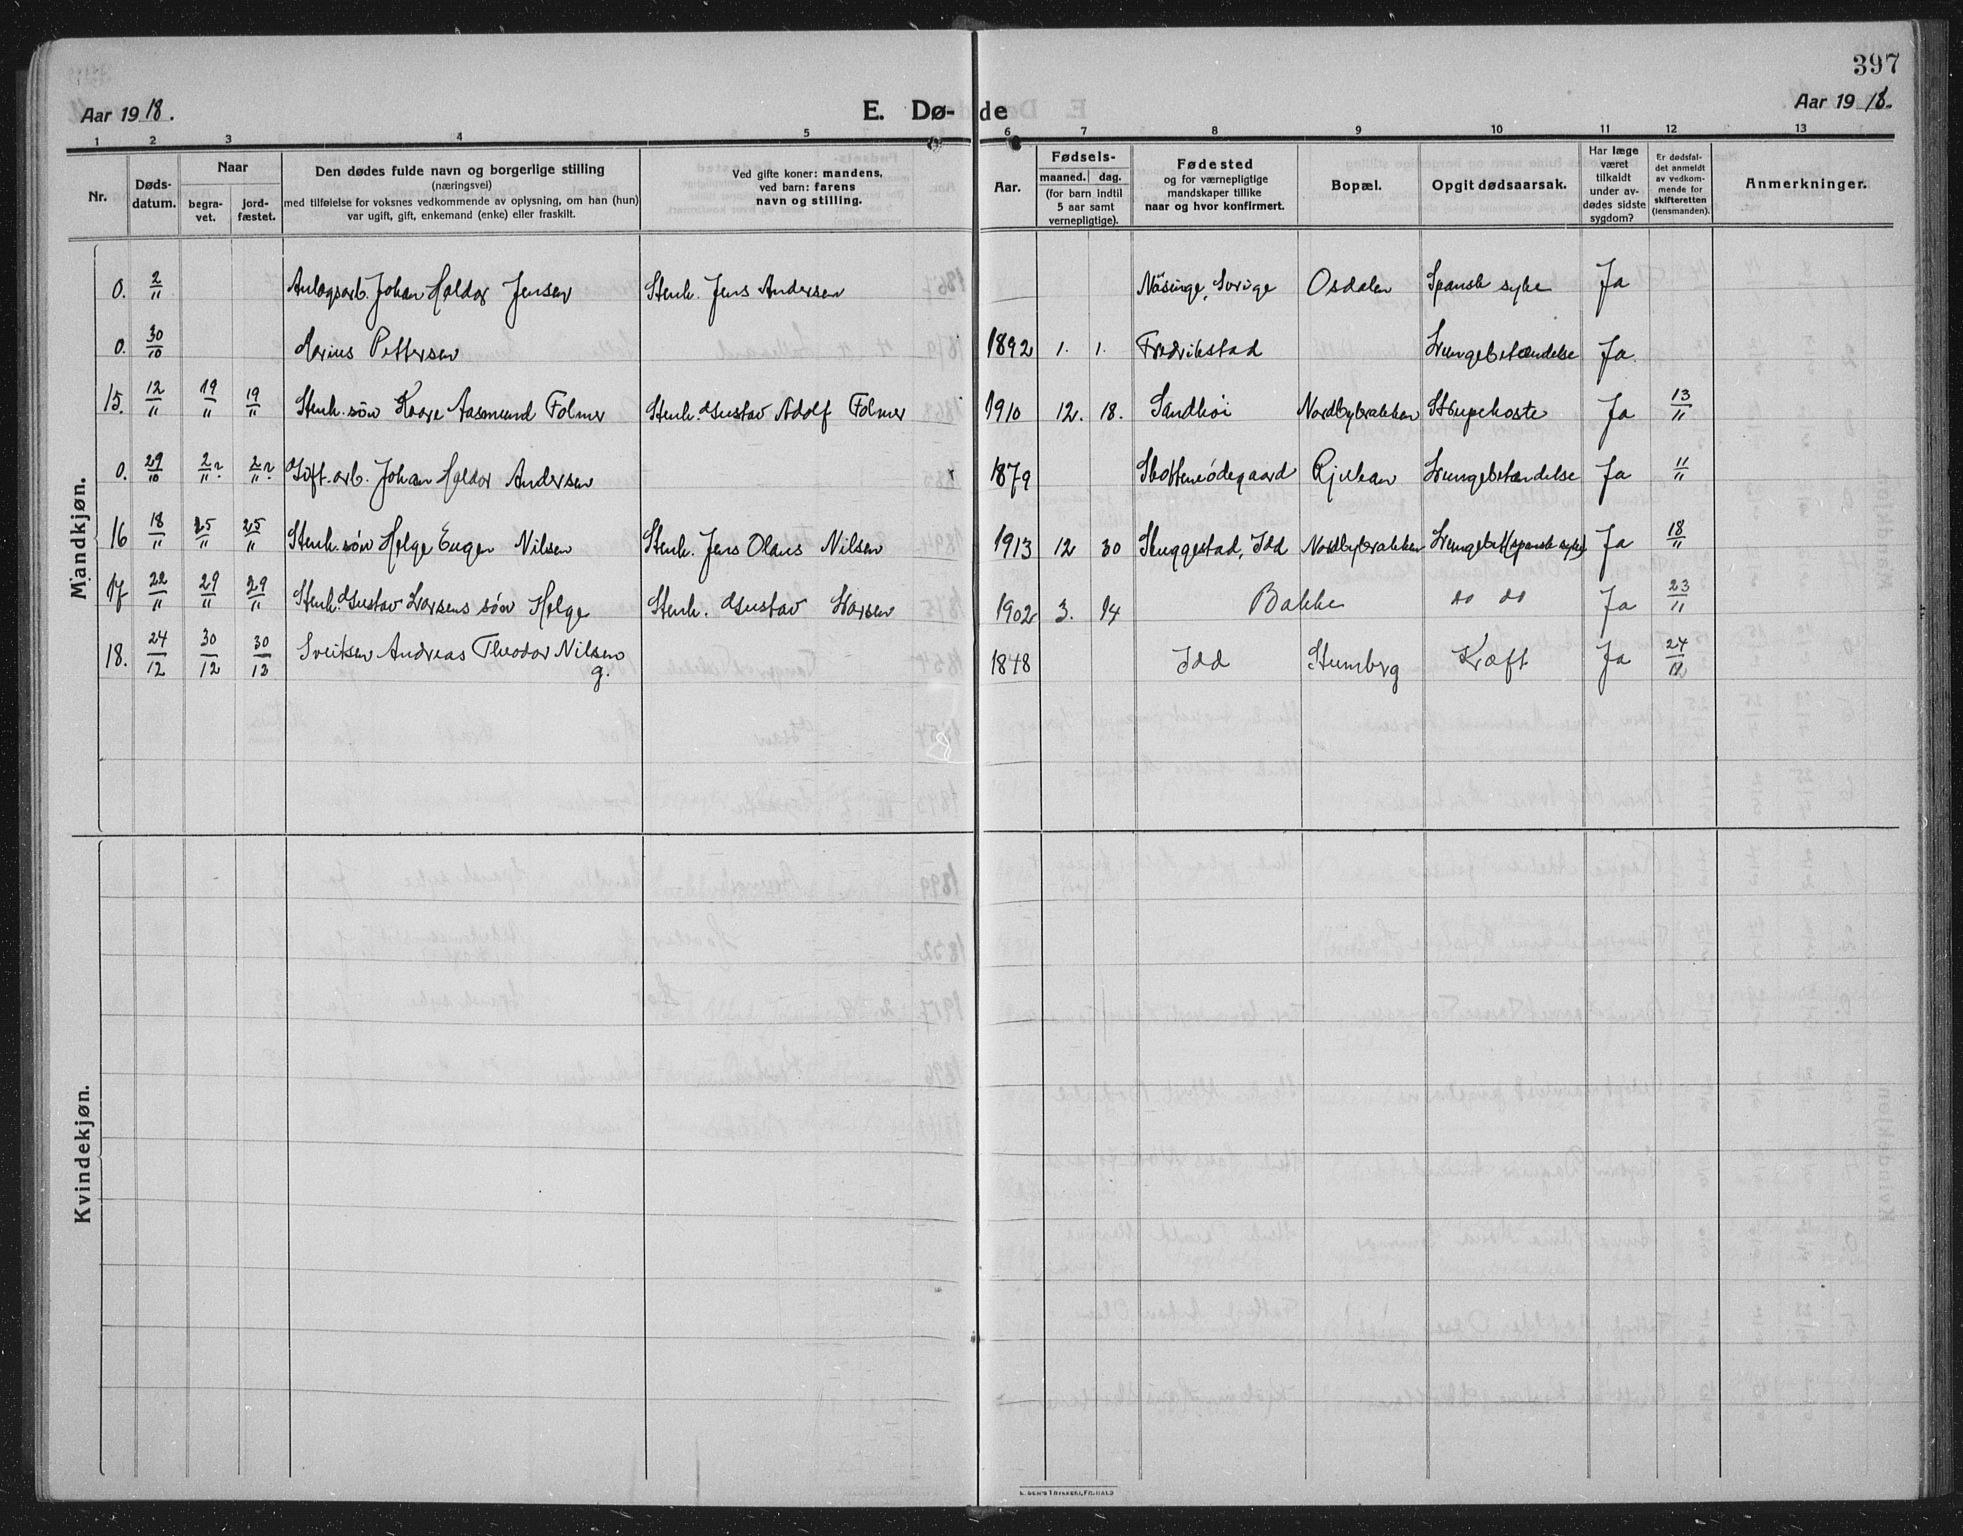 397
Aar 1918.
E. Dø-
de
Aar 1918.
1 2 3 4 5 6 7 8 9 10 11 12 13
Nr.
Døds-
datum.
Naar
begra-
vet.
jord-
fæstet.
Den dødes fulde navn og borgerlige stilling
(næringsvei)
med tilføielse for voksnes vedkommende av oplysning, om han (hun)
var ugift, gift, enkemand (enke) eller fraskilt.
Ved gifte koner: mandens,
ved barn: farens
navn og stilling.
Aar.
Fødsels-
maaned. dag.
(for barn indtil
5 aar samt
vernepligtige).
Fødested
og for værnepligtige
mandskaper tillike
naar og hvor konfirmert.
Bopæl.
Opgit dødsaarsak.
Har læge
været
tilkaldt
under av-
dødes sidste
sygdom?
Er dødsfal-
det anmeldt
av vedkom-
mende for
skifteretten
(lensmanden).
Anmerkninger.
Mandkjøn.
0. 2/11 Anlægsarb. Johan Haldor Jensen Stenh. Jens Andersen Näsinge, Sverige Osdalen Spansk syke Ja
0. 30/10 Marius Pettersen 1892 1. 1. Fredrikstad Lungebetændelse Ja.
15. 12/11 19/11 19/11 Stenh. søn Kaare Aasmund Folmer Stenh. Gustav Adolf Folmer 1910 12. 18. Sandhøi Nordbybrakken Strupehoste Ja 13/11
0. 29/10 2/11? 2/11? Gift. arb. Johan Haldor Andersen 1879 Skotteneødegaard Rjukan Lungebetændelse Ja 11/11
16 18/11 25/11 25/11 Stenh. søn Helge Eugen Nilsen Stenh. Jens Olaus Nilsen 1913 12 30 Skuggestad, Idd Nordbybrakken Lungebet. (spansk syke) Ja 18/11
17 22/11 29/11 29/11 Stenh. Gustav Larsens søn Helge Stenh. Gustav Larsen 1902 3. 14 Bakke do do Ja 23/11
18. 24/12 30/12 30/12 Sveitser Andreas Theodor Nilsen 1848 Idd Stumberg Kræft Ja 24/12
g.
Kvindekjøn.